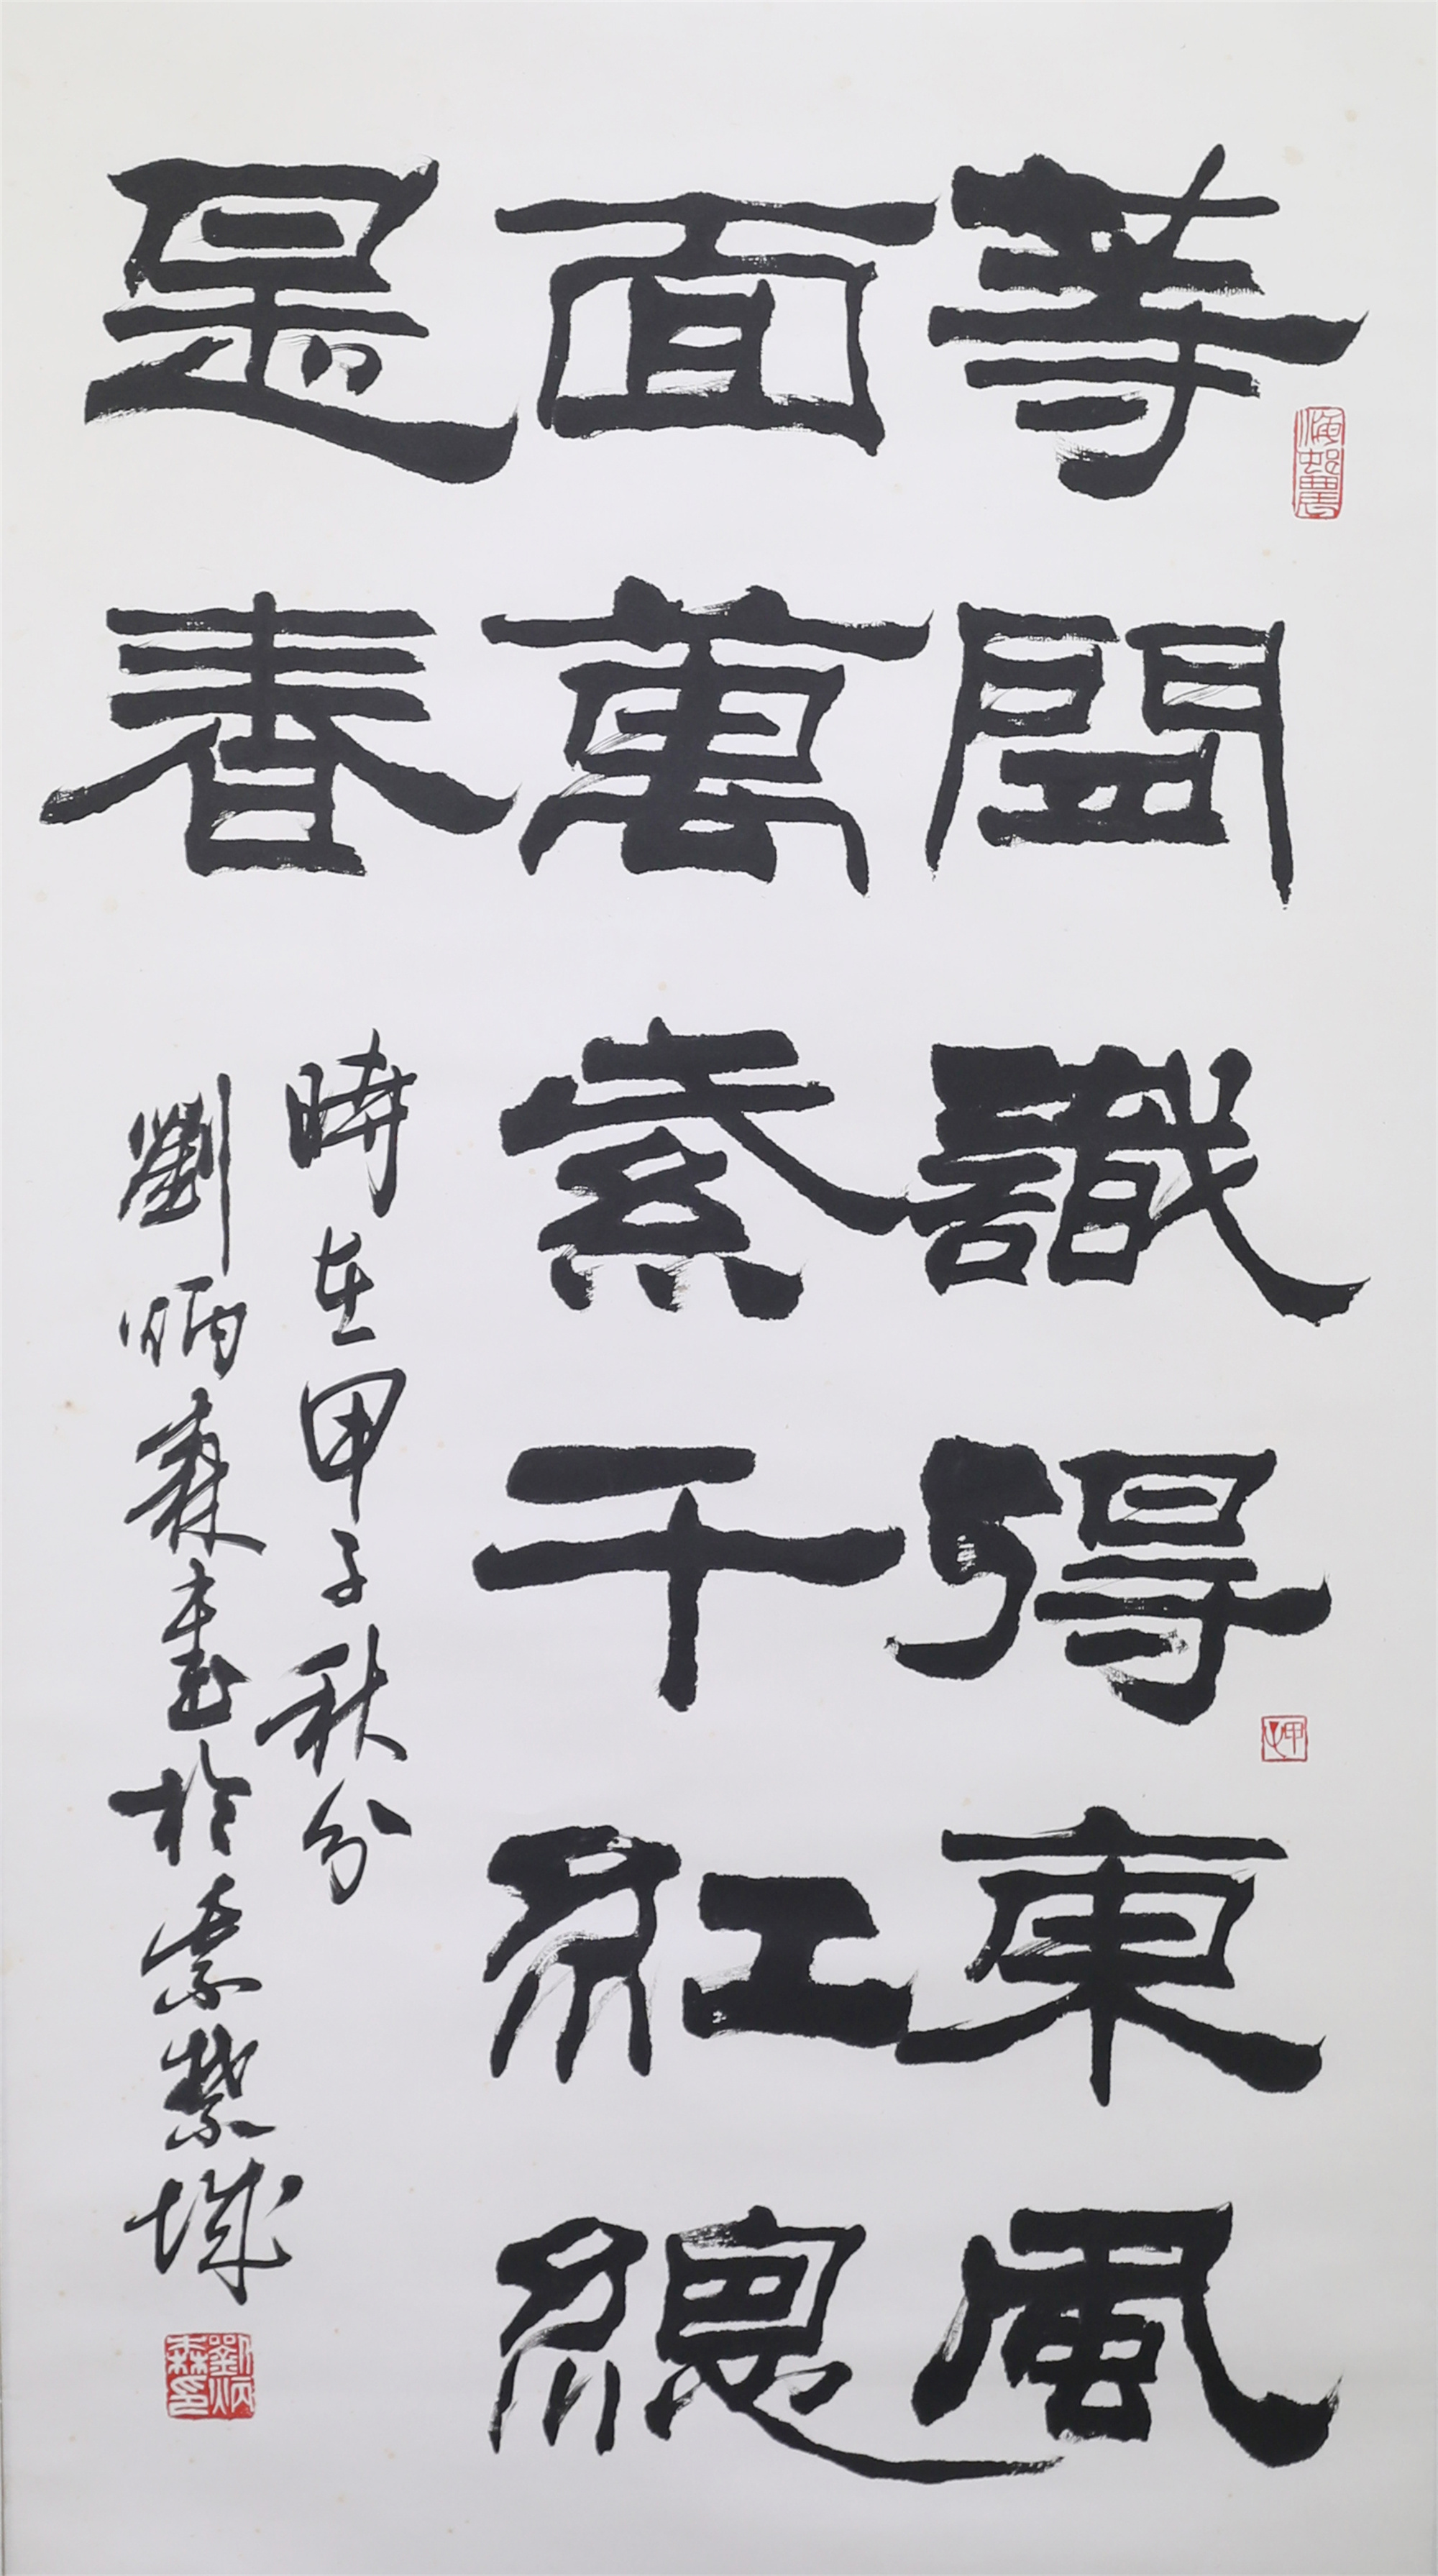 等閒識得東風
面萬紫千紅總
是春
時在甲子秋分
劉炳森書於紫禁城
甲子
劉炳森印